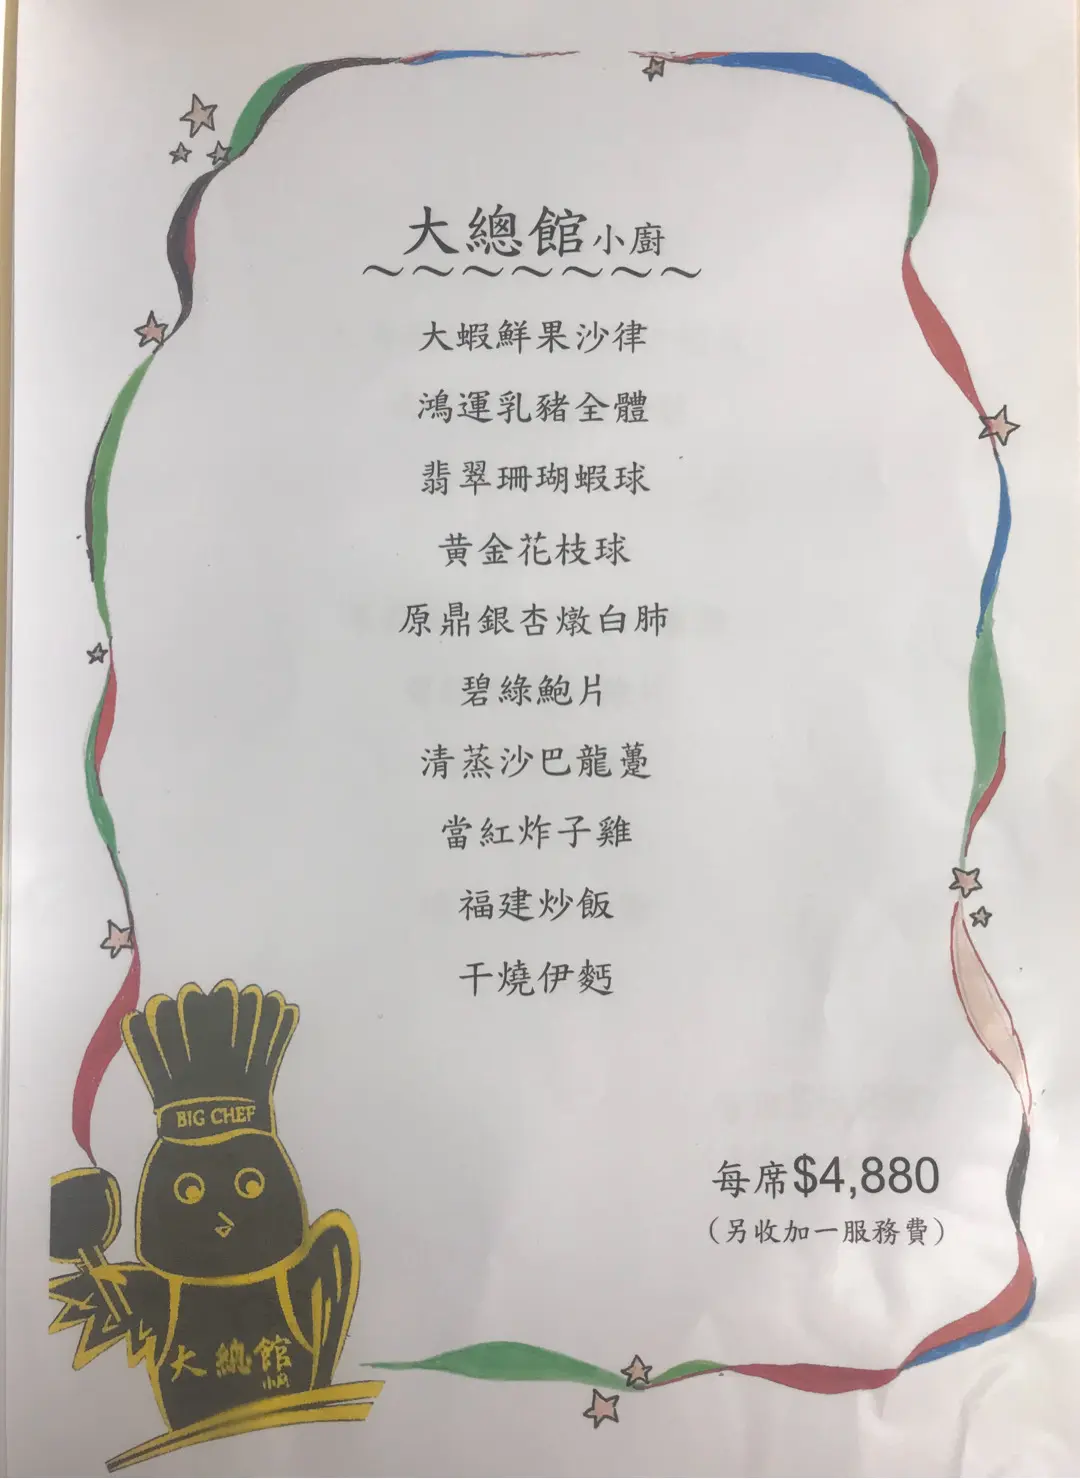 大總館小廚
～～～～～～～
大蝦鮮果沙律
鴻運乳豬全體
翡翠珊瑚蝦球
黃金花枝球
原鼎銀杏燉白肺
碧綠鮑片
清蒸沙巴龍躉
當紅炸子雞
福建炒飯
干燒伊麪
每席$4,880
（另收加一服務費）
BIG CHEF
大總館
小廚